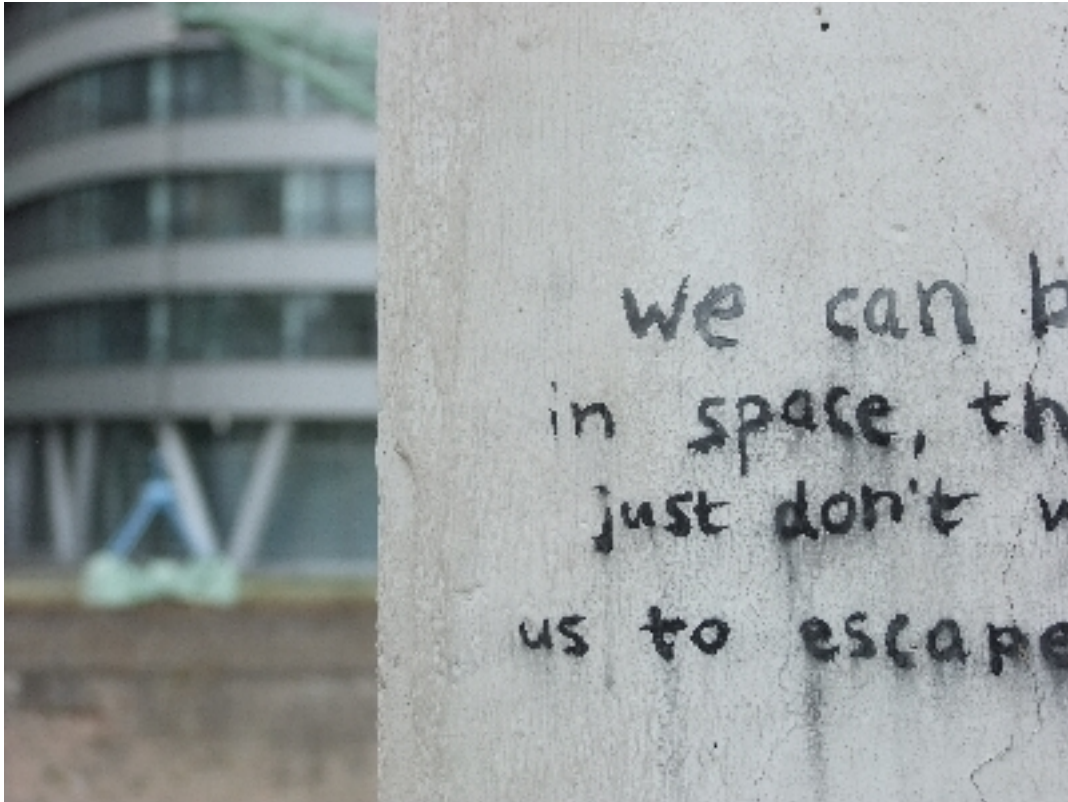 we can b
in space, th
just don't w
us to escape